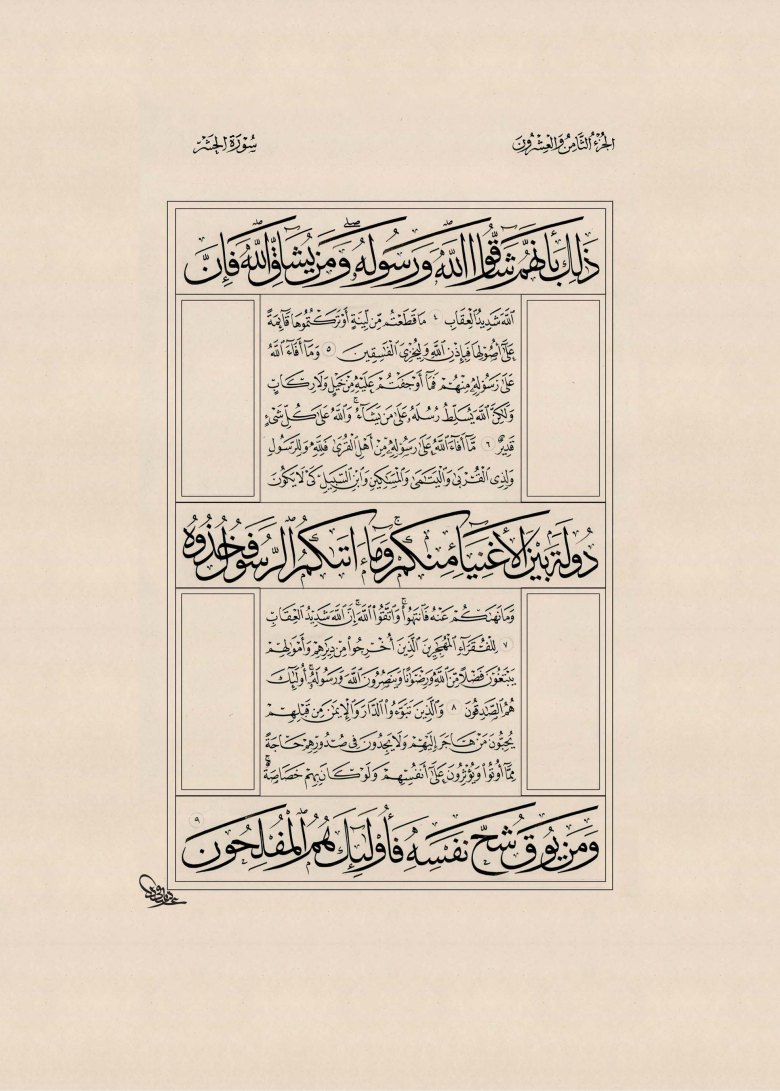 الجُزءُ الثَّامِنُ وَالعِشْرُونَ
سُورَةُ الحَشْرِ
ذَٰلِكَ بِأَنَّهُمْ شَاقُّوا۟ ٱللَّهَ وَرَسُولَهُۥ ۖ وَمَن يُشَاقِّ ٱللَّهَ فَإِنَّ
ٱللَّهَ شَدِيدُ ٱلْعِقَابِ ٤ مَا قَطَعْتُم مِّن لِّينَةٍ أَوْ تَرَكْتُمُوهَا قَآئِمَةً
عَلَىٰٓ أُصُولِهَا فَبِإِذْنِ ٱللَّهِ وَلِيُخْزِىَ ٱلْفَٰسِقِينَ ٥ وَمَآ أَفَآءَ ٱللَّهُ
عَلَىٰ رَسُولِهِۦ مِنْهُمْ فَمَآ أَوْجَفْتُمْ عَلَيْهِ مِنْ خَيْلٍ وَلَا رِكَابٍ
وَلَٰكِنَّ ٱللَّهَ يُسَلِّطُ رُسُلَهُۥ عَلَىٰ مَن يَشَآءُ ۚ وَٱللَّهُ عَلَىٰ كُلِّ شَىْءٍ
قَدِيرٌ ٦ مَّآ أَفَآءَ ٱللَّهُ عَلَىٰ رَسُولِهِۦ مِنْ أَهْلِ ٱلْقُرَىٰ فَلِلَّهِ وَلِلرَّسُولِ
وَلِذِى ٱلْقُرْبَىٰ وَٱلْيَتَٰمَىٰ وَٱلْمَسَٰكِينِ وَٱبْنِ ٱلسَّبِيلِ كَىْ لَا يَكُونَ
دُولَةًۢ بَيْنَ ٱلْأَغْنِيَآءِ مِنكُمْ ۚ وَمَآ ءَاتَىٰكُمُ ٱلرَّسُولُ فَخُذُوهُ
وَمَا نَهَىٰكُمْ عَنْهُ فَٱنتَهُوا۟ ۚ وَٱتَّقُوا۟ ٱللَّهَ ۖ إِنَّ ٱللَّهَ شَدِيدُ ٱلْعِقَابِ
٧ لِلْفُقَرَآءِ ٱلْمُهَٰجِرِينَ ٱلَّذِينَ أُخْرِجُوا۟ مِن دِيَٰرِهِمْ وَأَمْوَٰلِهِمْ
يَبْتَغُونَ فَضْلًا مِّنَ ٱللَّهِ وَرِضْوَٰنًا وَيَنصُرُونَ ٱللَّهَ وَرَسُولَهُۥٓ ۚ أُو۟لَٰٓئِكَ
هُمُ ٱلصَّٰدِقُونَ ٨ وَٱلَّذِينَ تَبَوَّءُو ٱلدَّارَ وَٱلْإِيمَٰنَ مِن قَبْلِهِمْ
يُحِبُّونَ مَنْ هَاجَرَ إِلَيْهِمْ وَلَا يَجِدُونَ فِى صُدُورِهِمْ حَاجَةً
مِّمَّآ أُوتُوا۟ وَيُؤْثِرُونَ عَلَىٰٓ أَنفُسِهِمْ وَلَوْ كَانَ بِهِمْ خَصَاصَةٌ ۚ
وَمَن يُوقَ شُحَّ نَفْسِهِۦ فَأُو۟لَٰٓئِكَ هُمُ ٱلْمُفْلِحُونَ ٩